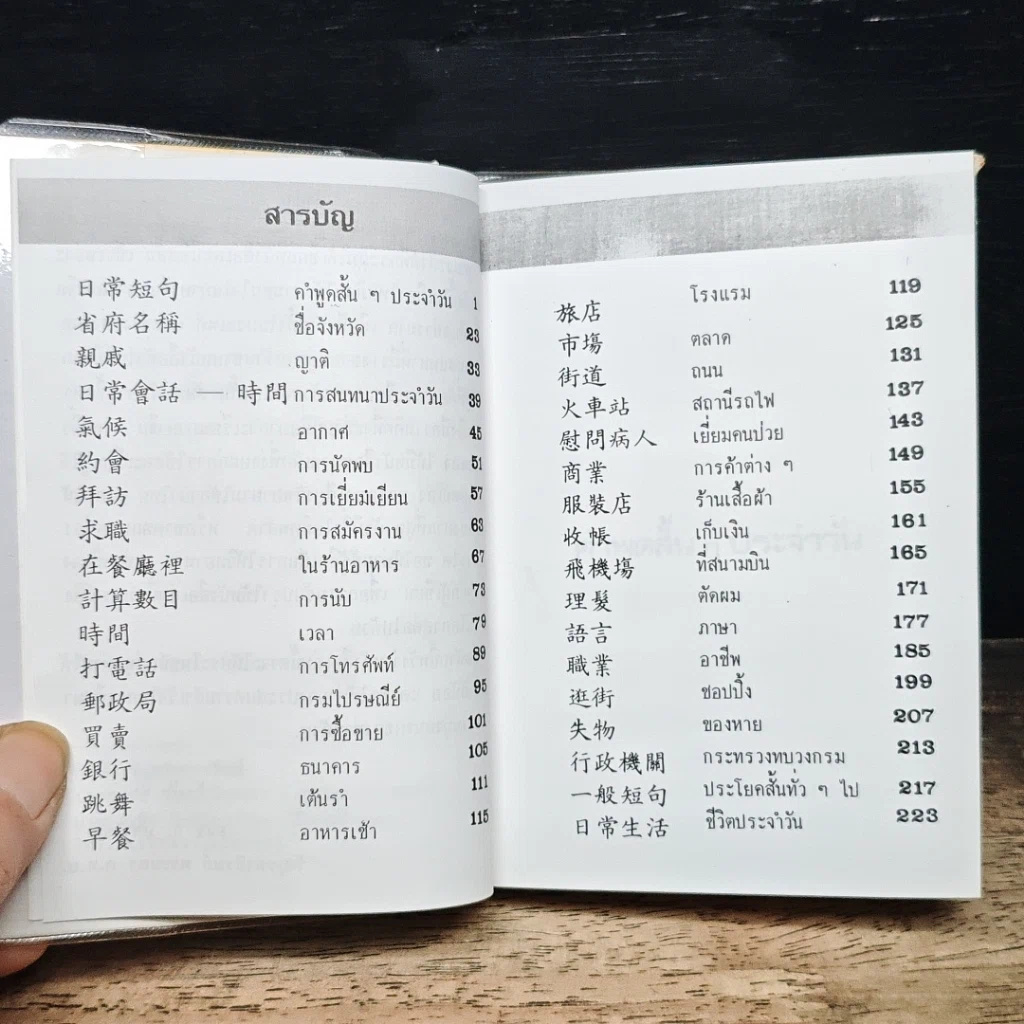 สารบัญ
日常短句 คำพูดสั้น ๆ ประจำวัน 1
省府名稱 ชื่อจังหวัด 23
親戚 ญาติ 33
日常會話 — 時間 การสนทนาประจำวัน 39
氣候 อากาศ 45
約會 การนัดพบ 51
拜訪 การเยี่ยมเยียน 57
求職 การสมัครงาน 63
在餐廳裡 ในร้านอาหาร 67
計算數目 การนับ 73
時間 เวลา 79
打電話 การโทรศัพท์ 89
郵政局 กรมไปรษณีย์ 95
買賣 การซื้อขาย 101
銀行 ธนาคาร 105
跳舞 เต้นรำ 111
早餐 อาหารเช้า 115
旅店 โรงแรม 119
市場 ตลาด 125
街道 ถนน 131
火車站 สถานีรถไฟ 137
慰問病人 เยี่ยมคนป่วย 143
商業 การค้าต่าง ๆ 149
服裝店 ร้านเสื้อผ้า 155
收帳 เก็บเงิน 161
飛機場 ที่สนามบิน 165
理髮 ตัดผม 171
語言 ภาษา 177
職業 อาชีพ 185
逛街 ชอปปิ้ง 199
失物 ของหาย 207
行政機關 กระทรวงทบวงกรม 213
一般短句 ประโยคสั้นทั่ว ๆ ไป 217
日常生活 ชีวิตประจำวัน 223